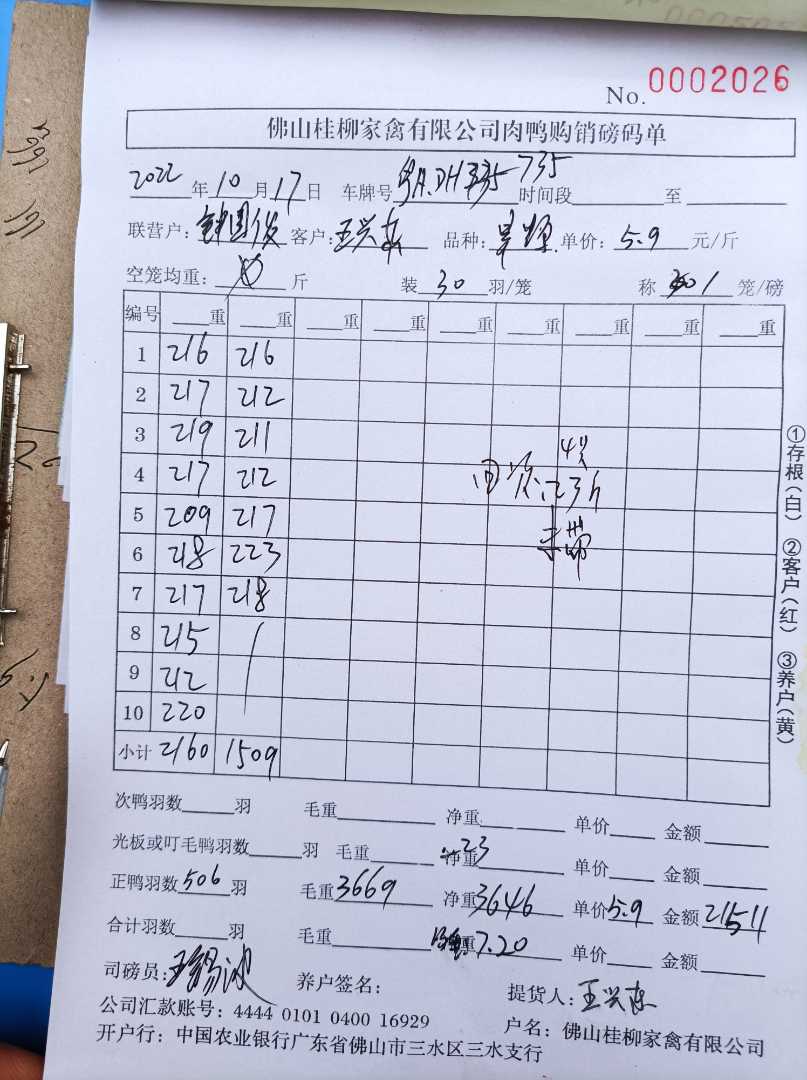 No. 0002026
佛山桂柳家禽有限公司肉鸭购销磅码单
2022年10月17日 车牌号 735 时间段 至
联营户: 钟国俊 客户: 王兴东 品种: 单价: 5.9 元/斤
空笼均重: 斤 装 30 羽/笼 称 1 笼/磅
编号 重 重 重 重 重 重 重 重
1 216 216
2 217 212
3 219 211
4 217 212
5 209 217
6 218 223
7 217 218
8 215
9 212
10 220
小计 2160 1509
4只
23斤
未带
①存根(白) ②客户(红) ③养户(黄)
次鸭羽数 羽 毛重 净重 单价 金额
光板或叮毛鸭羽数 羽 毛重 净重 23 单价 金额
正鸭羽数 506 羽 毛重 3669 净重 3646 单价 5.9 金额 21511
合计羽数 羽 毛重 7.20 单价 金额
司磅员: 养户签名: 提货人: 王兴东
公司汇款账号: 4444 0101 0400 16929 户名: 佛山桂柳家禽有限公司
开户行: 中国农业银行广东省佛山市三水区三水支行